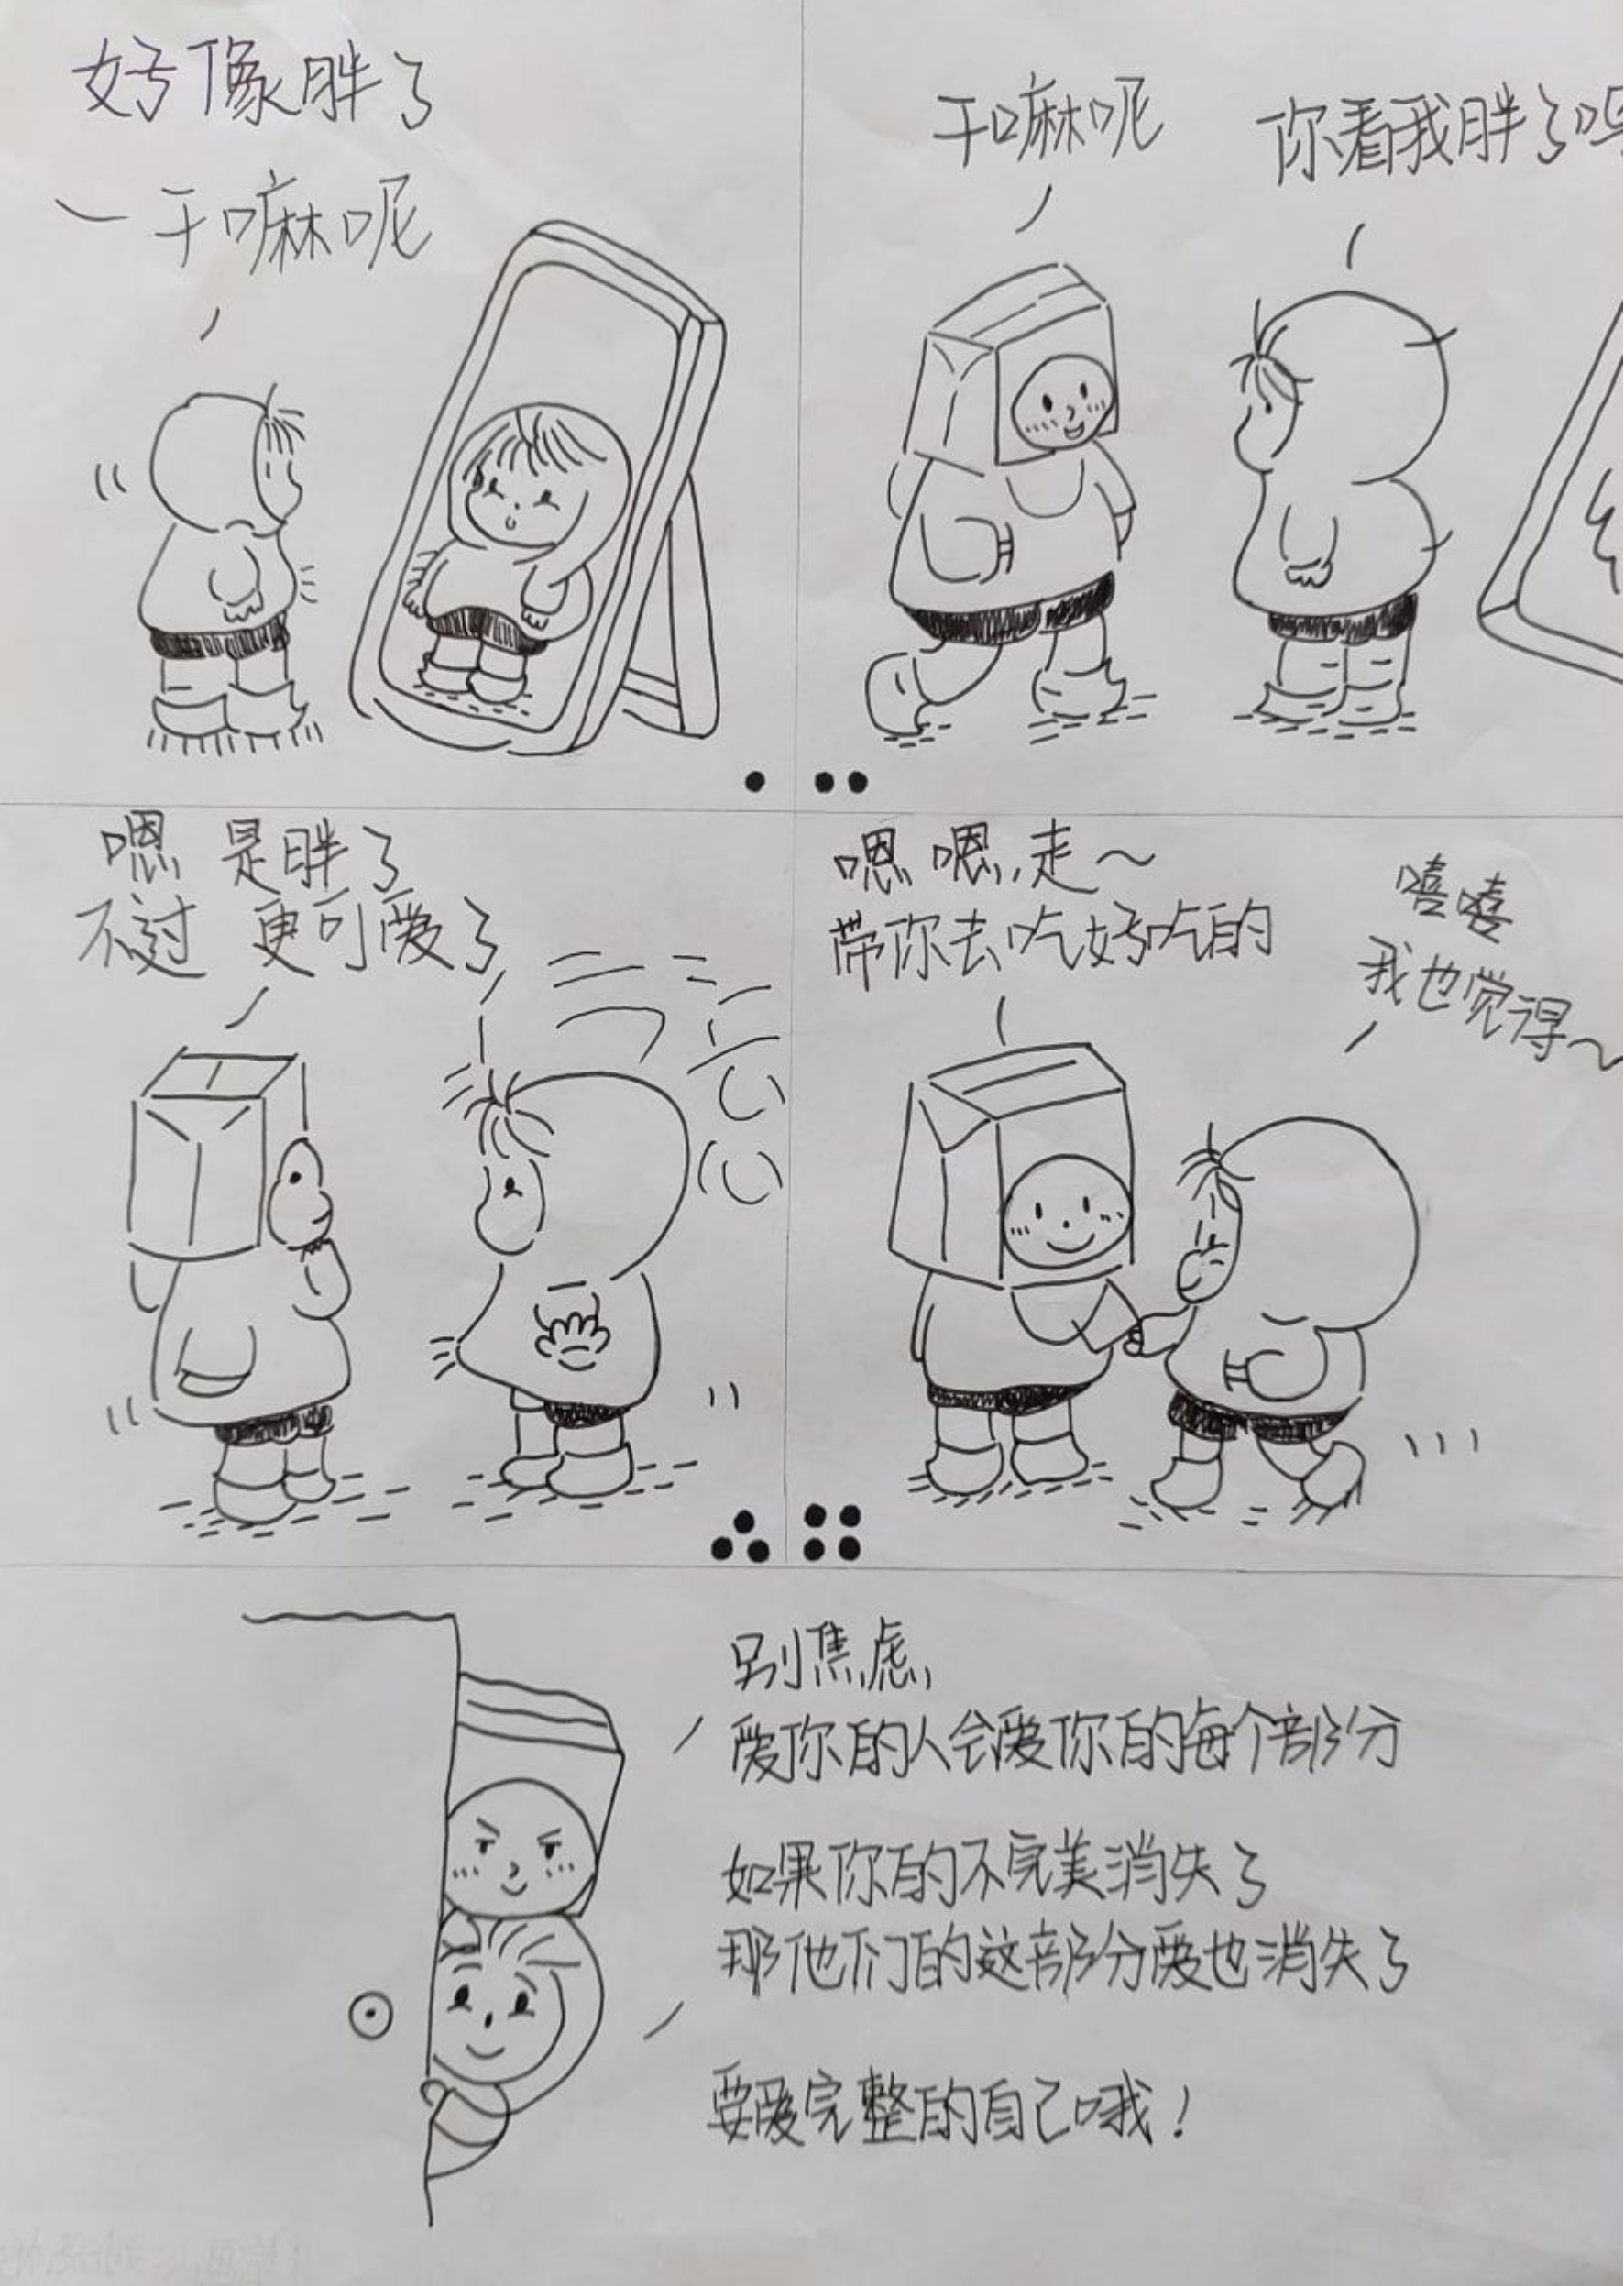 好像胖了
干嘛呢
干嘛呢
你看我胖了吗
嗯 是胖了
不过 更可爱了
嗯 嗯,走～
带你去吃好吃的
嘻嘻
我也觉得～
别焦虑,
爱你的人会爱你的每个部分
如果你的不完美消失了
那他们的这部分爱也消失了
要爱完整的自己哦!